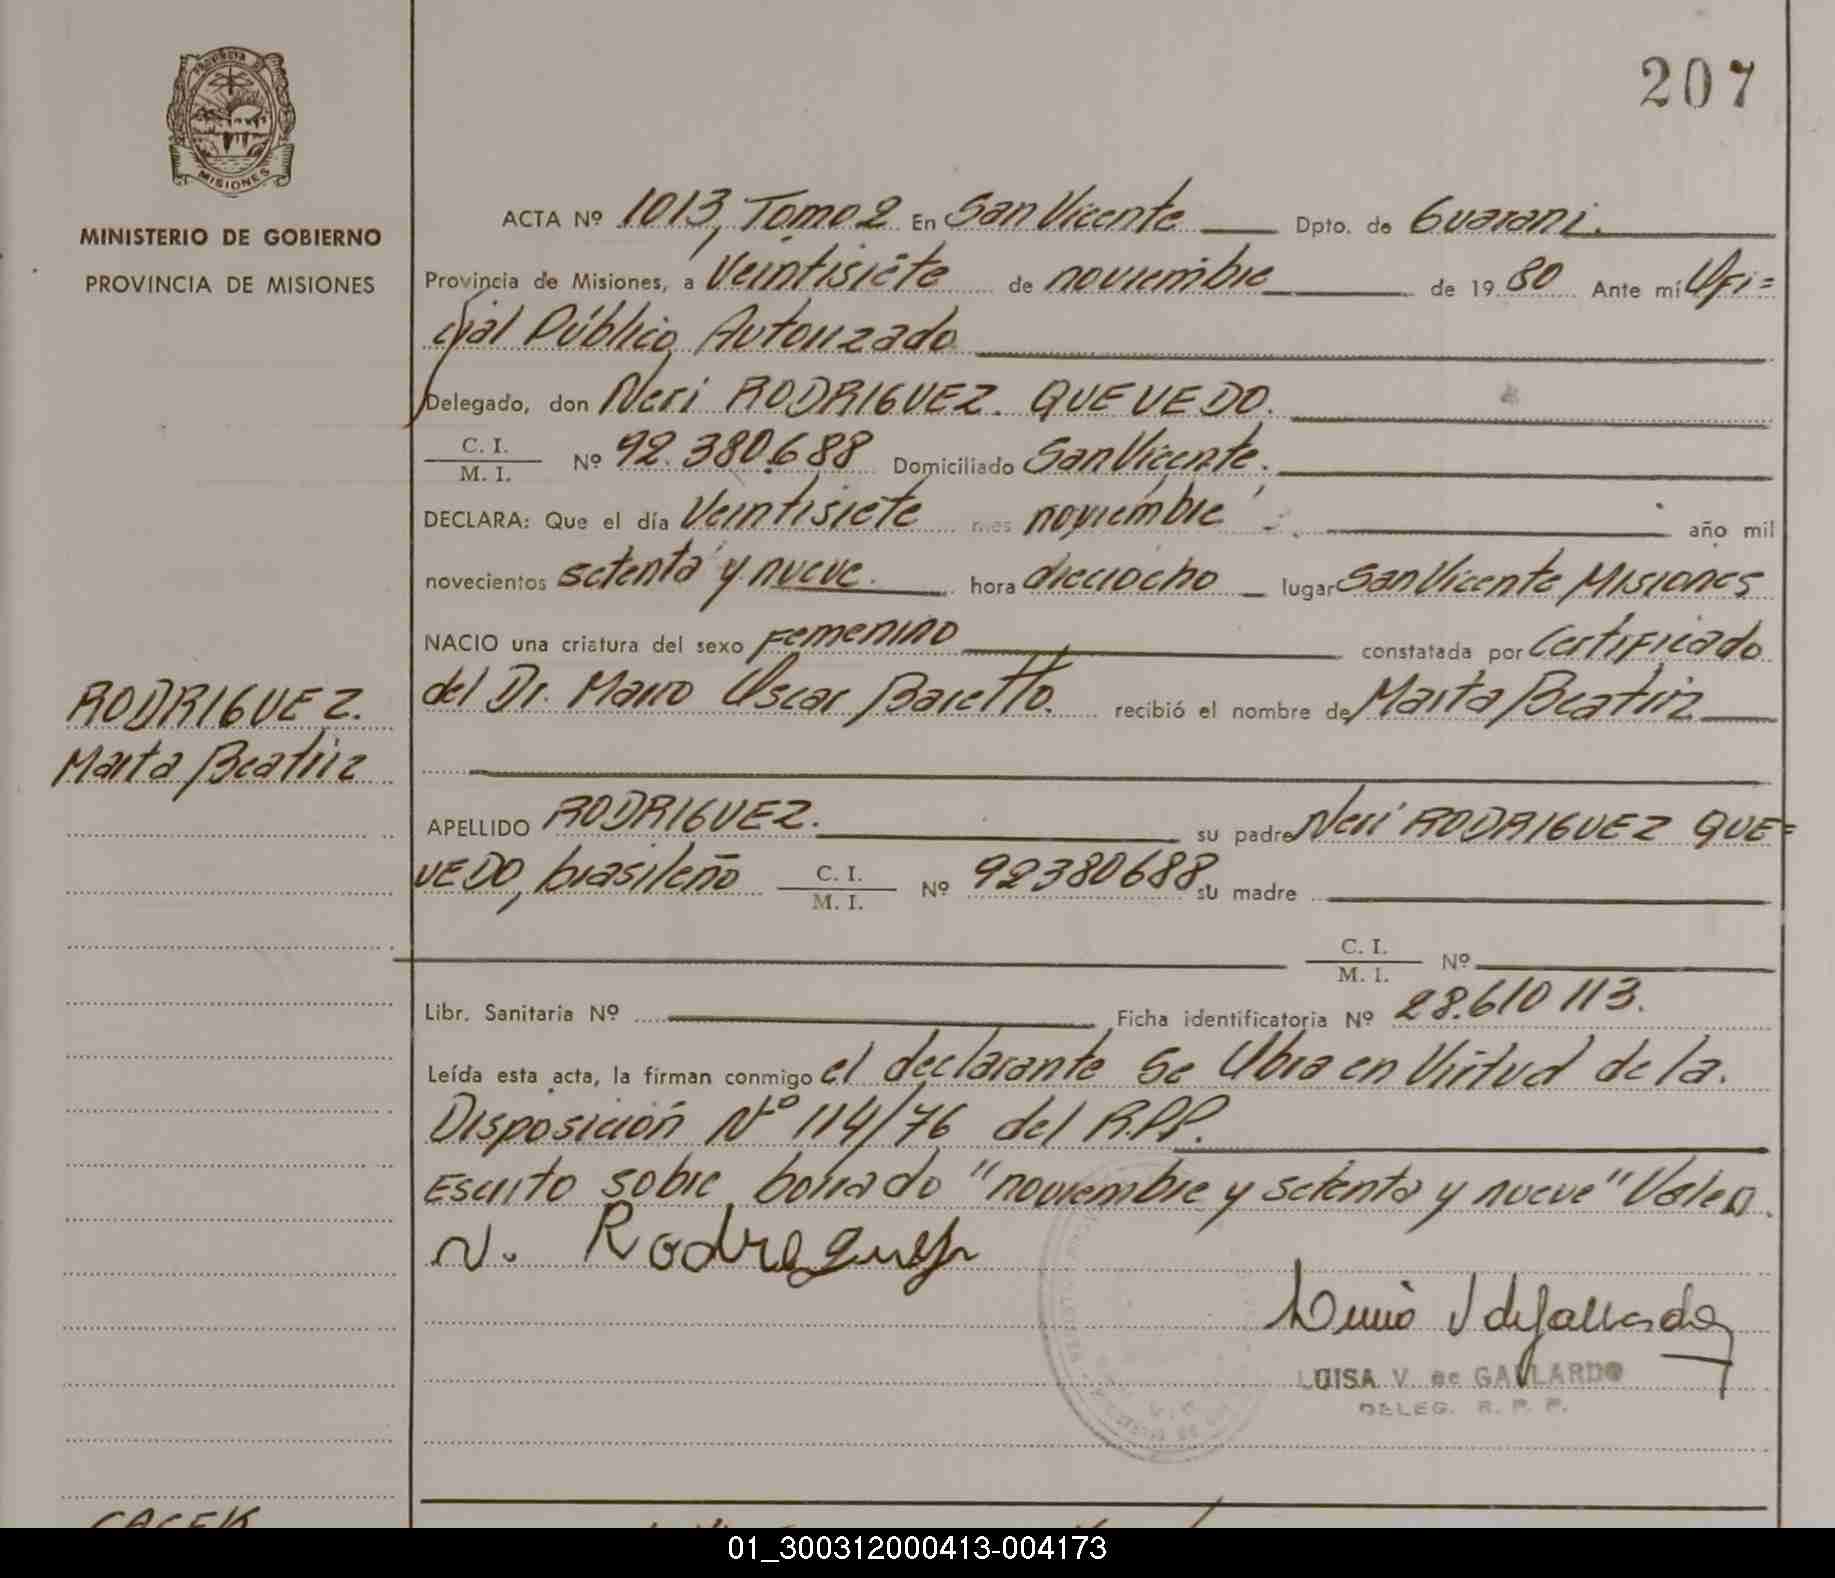 207
PROVINCIA DE
MISIONES
MINISTERIO DE GOBIERNO
PROVINCIA DE MISIONES
ACTA Nº 1013, Tomo 2 En San Vicente Dpto. de Guarani.
Provincia de Misiones, a Veintisiete de noviembre de 1980 Ante mí Ofi=
cial Público Autorizado
Delegado, don Neri RODRIGUEZ QUEVEDO.
C. I.
M. I.
Nº 92.380.688 Domiciliado San Vicente.
DECLARA: Que el día Veintisiete mes noviembre año mil
novecientos setenta y nueve. hora dieciocho lugar San Vicente Misiones
NACIO una criatura del sexo Femenino constatada por Certificado
del Dr. Mario Oscar Baretto. recibió el nombre de Marta Beatriz
RODRIGUEZ.
Marta Beatriz
APELLIDO RODRIGUEZ. su padre Neri RODRIGUEZ QUE=
VEDO, brasileño C. I. M. I. Nº 92380688 su madre
C. I.
M. I.
Nº
Libr. Sanitaria Nº Ficha identificatoria Nº 28.610 113.
Leída esta acta, la firman conmigo el declarante Se Obra en Virtud de la
Disposición Nº 114/76 del R.P.P.
Escrito sobre borrado "noviembre y setenta y nueve" Valen.
N. Rodreguez
LUISA V. de GALLARDO
DELEG. R. P. P.
01_300312000413-004173